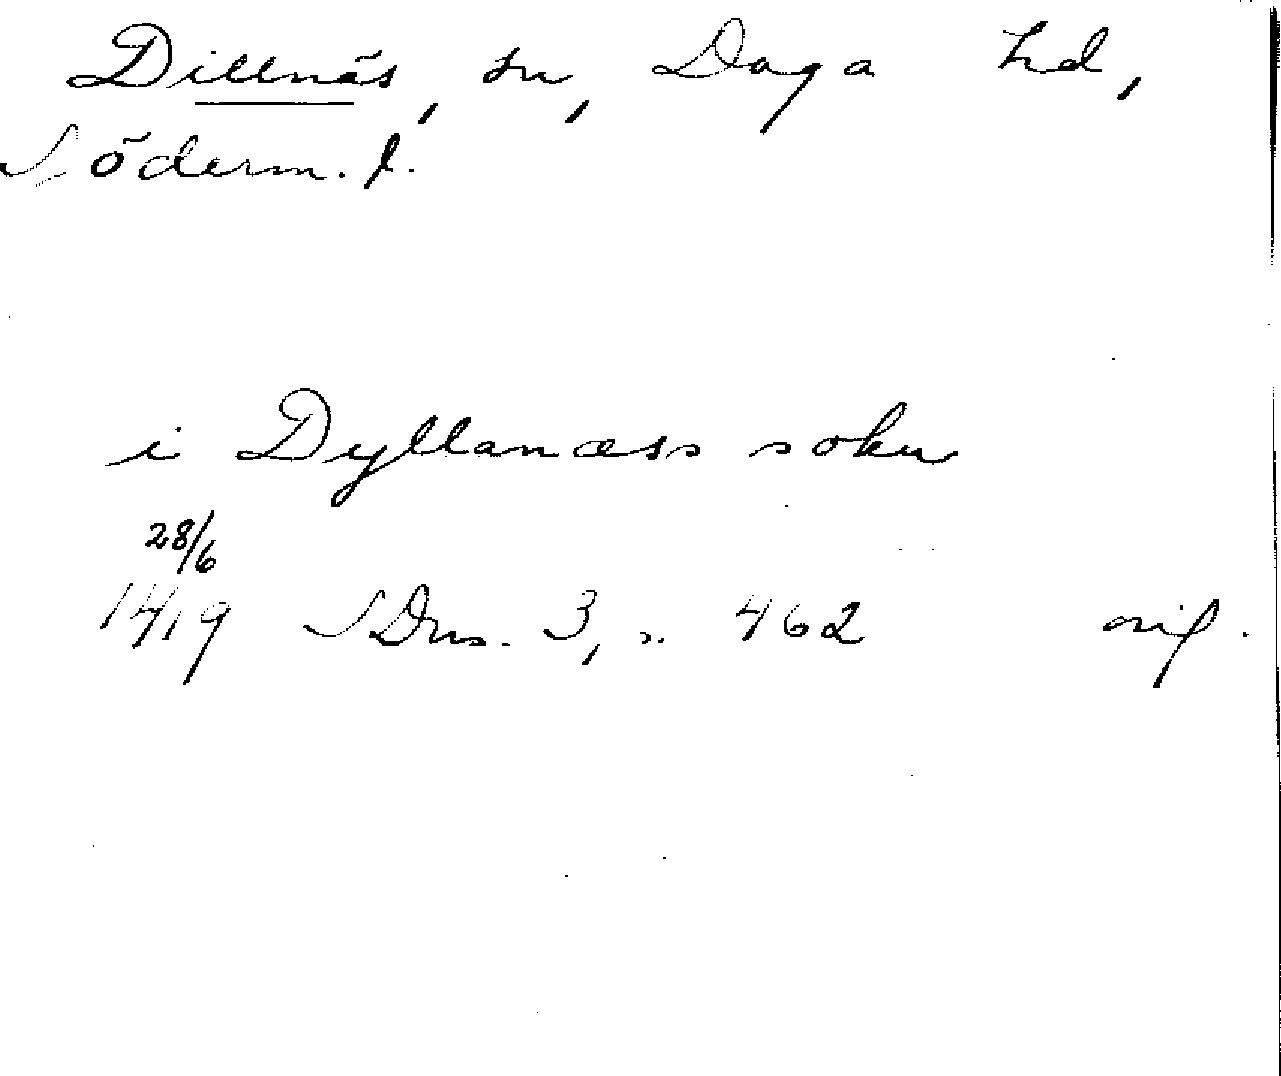 Dillnäs, sn, Daga hd,
Söderm. l.
i Dyllanæss sokn
28/6
1419 SDns. 3, s. 462 orig.